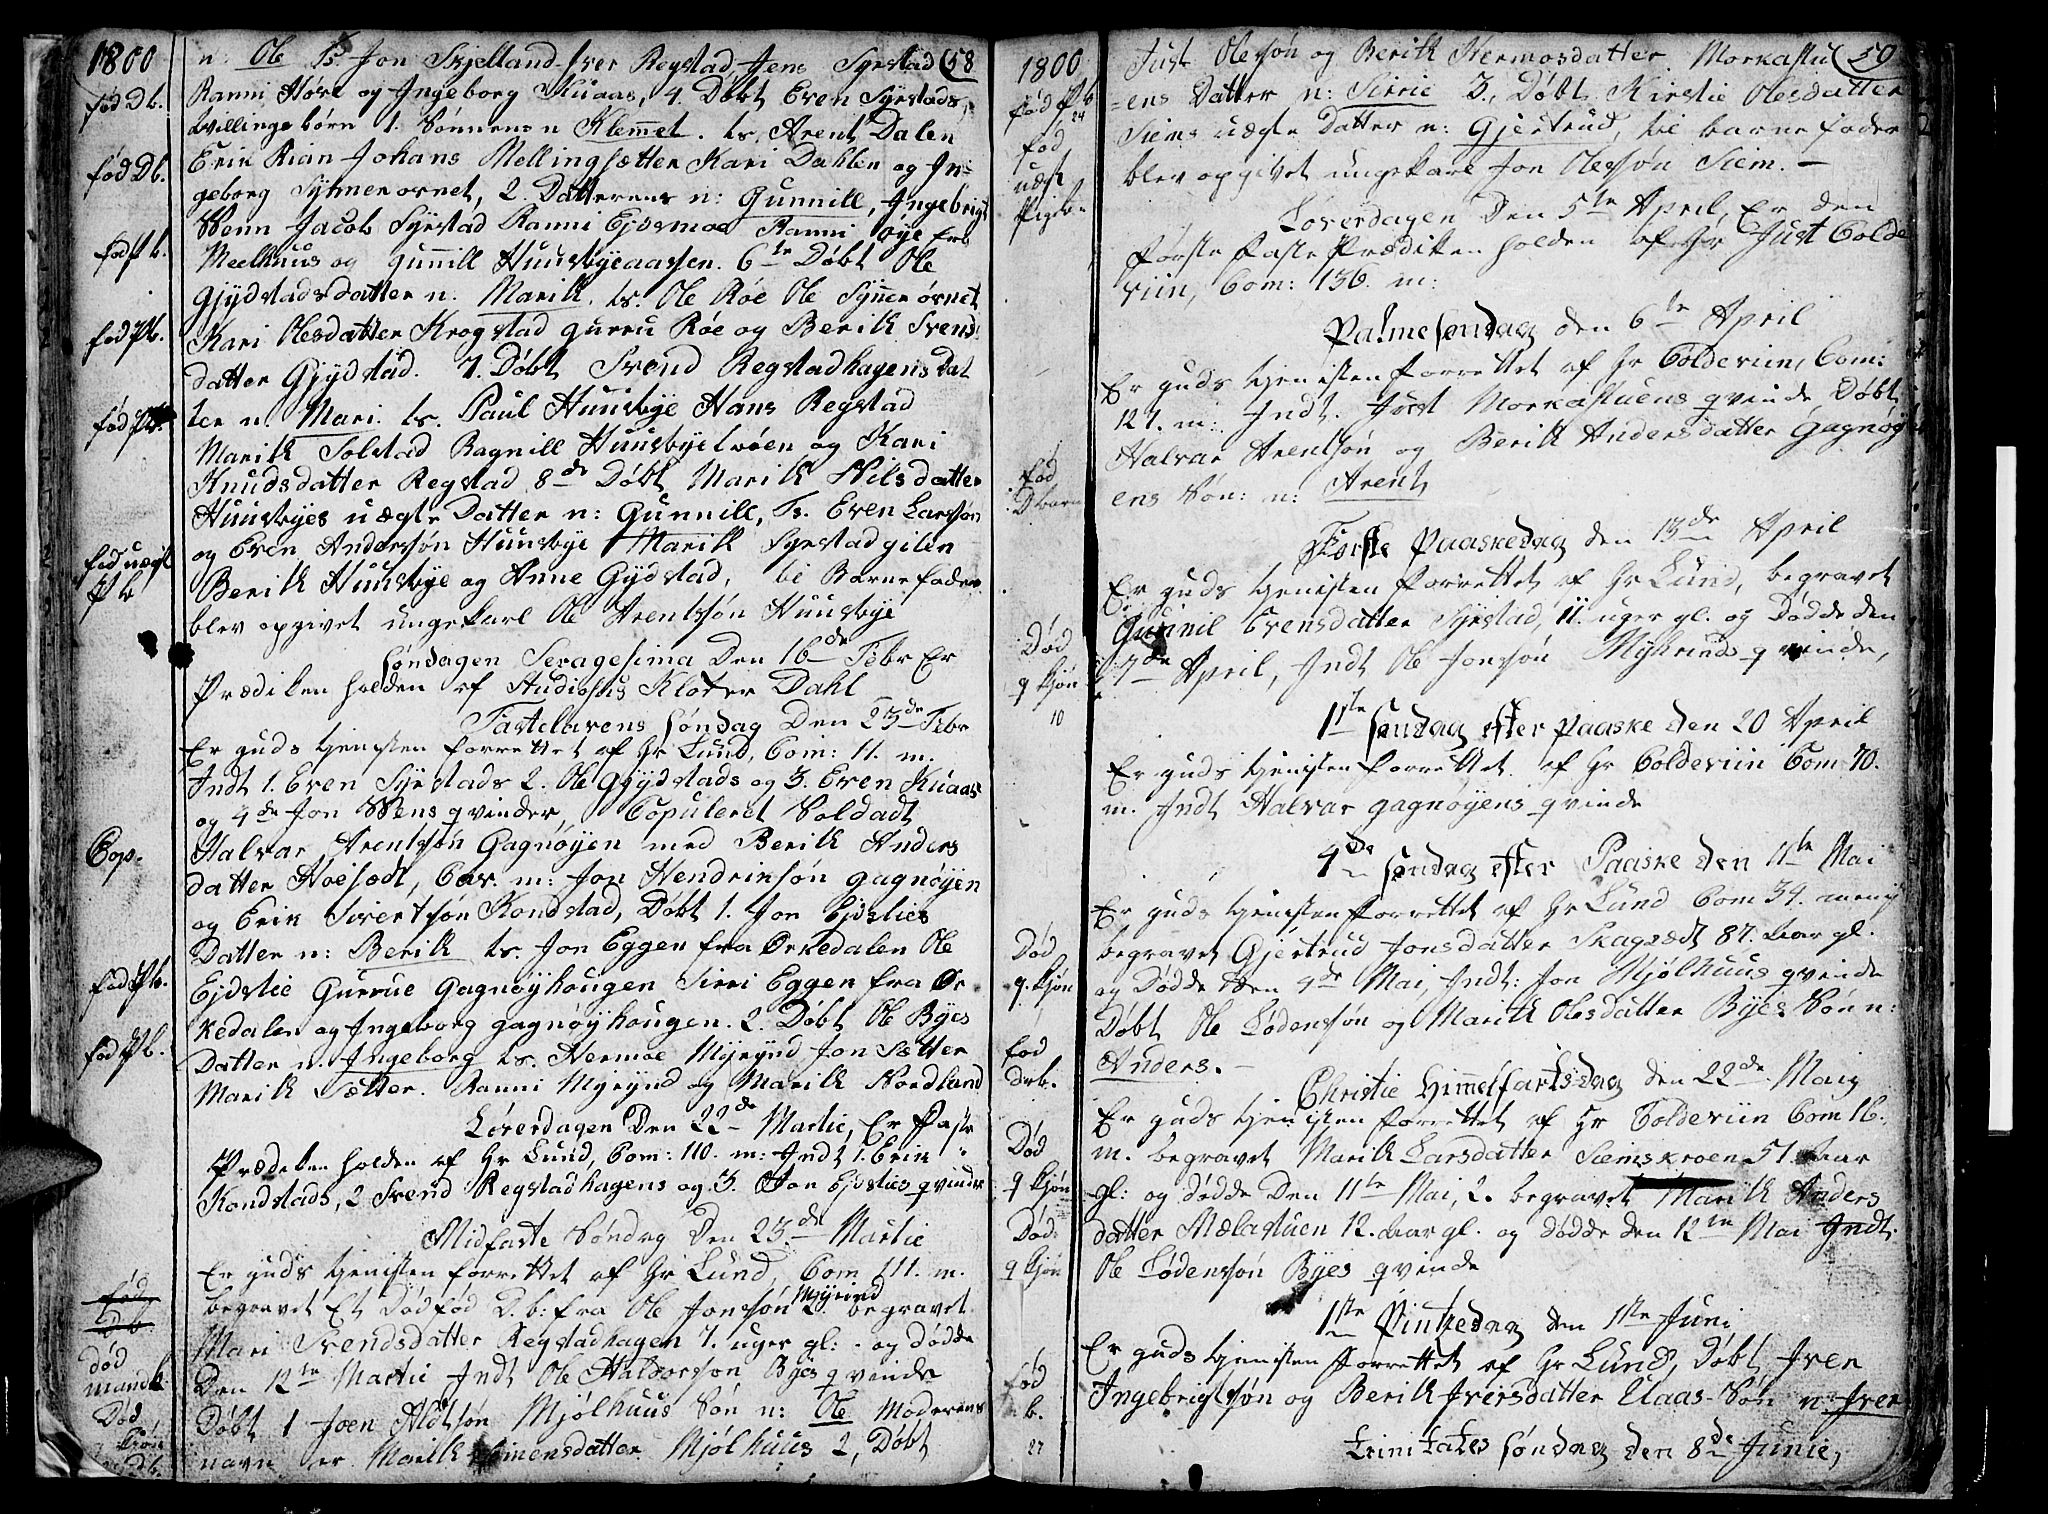 1800
n: Ole Ts. Jon Skjelland Iver Regstad Jens Syrstad 58
fød Db.
Ranni Høre og Ingeborg Kuaas, 4. Døbt Even Syrstads
tvillinge børn 1. Sønnens n Klemmet. ts. Arent Dalen
fød Db.
Erik Rian Johans Mellingsætter Kari Dahlen og In-
geborg Synnerørnet, 2. Datterens n: Gunnill, Ingebrigt
Wenn Jacob Syrstad Ranni Eidsmoe Ranni Øye
fød P b.
Meelhuus og Gunnill Huusbyeaassen. 6te Døbt Ole
Gjydstads datter n. Marik. ts. Ole Røe Ole Synnerørnet
fød Pb.
Kari Olesdatter Krogstad Gurru Røe og Berik Svends
datter Gjydstad. 7. Døbt Svend Regstadhagens Dat
fød Pb.
ter n. Mari. ts. Paul Huusbye Hans Regstad
Marik Solstad Ragnill Huusbye og Kari
Knudsdatter Regstad 8de Døbt Marik Nilsdatter
Huusbyes uægte Datter n: Gunnill, Ts. Even Larssøn
fød uægt
P b
og Even Anderssøn Huusbye Marik Syrstadgilen
Berik Huusbye og Anne Gydstad, til Barnefader
blev opgivet ungekarl Ole Arentssøn Huusbye
Søndagen Sexagesima Den 16de Febr Er
Prædiken holden af Studiosus Kloter Dahl
Fastelavens Søndag Den 23de Febr
Er guds tjenisten forrettet af Hr Lund, Com: 11. m.
Indt 1. Even Syrstads 2. Ole Gjydstads og 3. Even Kuaas
og 4de Jon Wens qvinder, Copuleret Soldadt
Cop.
Halvar Arentssøn Gagnøyen med Berik Anders
datter Hoesædt, Cav. m: Jon Hendriksøn Gagnøyen
og Erik Sivertsøn Kondstad, Døbt 1. Jon Ejdslies
Datter n: Berik ts. Jon Eggen fra Ørkedalen Ole
fød Pb.
Ejdslie Gurrue Gagnøyhougen Sirri Eggen fra Ør
kedalen og Ingeborg Gagnøyhougen. 2. Døbt Ole Byes
fød P b.
Datter n. Ingeborg ts. Hermoe Myrynd Jon Sætter
Marik Sætter. Ranni Myrynd og Marik Nordland
Løverdagen Den 22de Martie, Er Faste
Prædiken holden af Hr Lund, Com: 110. m: Indt 1. Erik
Kondstads, 2 Svend Regstadhagens og 3. Jon Ejdslies qvinder
Midfaste Søndag Den 23de Martie
Er guds tjenisten forrettet af Hr Lund, Com 111. m.
fød
D b.
begravet Et Dødfød D. b: fra Ole Jonssøn Myrind 2. begravet
Mari Svendsdatter Regstadhagen 7. uger gl: og Dødde
død
mandk
Den 12te Martie Indt Ole Halvorsson Byes qvinde
Død
Døbt 1 Joen Aldtsøn Mjølhuus Søn n: Ole Moderens
navn er Marik Simensdatter Mjølhuus 2, Døbt
1800
Just Olessøn og Berik Hermosdatter Morkastu 59
fød Pb
24
ens Datter n: Sirrie 3., Døbt Kirstie Olesdatter
fød
uægt
Pigeb
Siems uægte Datter n: Gjertrud, til barnefader
blev opgivet ungekarl Jon Olessøn Siem. –
Løverdagen Den 5te April, Er den
Første Faste Prædiken holden af Hr Just Colde
viin, Com: 136. m:
Palmesøndag den 6te April
Er guds tjenisten forrettet af Hr Coldeviin, Com:
127. m: Indt. Just Morkastuens qvinde, Døbt
fød
D barn
Halvar Arentsøn og Berik Andersdatter Gagnøy
ens Søn: n: Arent
Første Paaskedag den 13de April
Er guds tjenisten forrettet af Hr Lund, begravet
Gunnil Evensdatter Syrstad, 11. uger gl. og Dødde den
Død
q kjøn
10
7de April, Indt Ole Jonssøn Myhrinds qvinde,
1ste Søndag efter Paaske den 20 April
Er guds tjenisten forrettet af Hr Coldeviin Com 70.
m. Indt Halvar Gagnøyens qvinde
4de Søndag efter Paaske den 11te Mai
Er guds tjenisten forrettet af Hr Lund Com 34. menig
Død
q. kjøn
begravet Gjertrud Jonsdatter Skagsædt 87. aar gl.
og Dødde Den 4de Mai, Indt: Jon Mjølhuus qvinde
Døbt Ole Lødenssøn og Marik Olesdatter Byes Søn n:
fød
Drb.
Anders. –
Christie Himmelfartsdag den 22de Maij
Er guds tjenisten forrettet af Hr Coldeviin Com 16.
Død
q kjøn
m. begravet Marik Larsdatter Siemskroen 51 aar
gl: og dødde Den 11te Mai, 2. begravet Marik Anders
Død
q kjøn
datter Mælastuen 12. aar gl. og dødde den 12te Mai Indt.
Ole Lødenssøn Byes qvinde
1ste Pintzedag den 1ste Juni
Er guds tjenisten forrettet af Hr Lund, Døbt Iven
fød
b.
27
Ingebrigtsøn og Berik Iversdatter Uaas Søn n: Iver
Trinitates Søndag den 8de Junie,